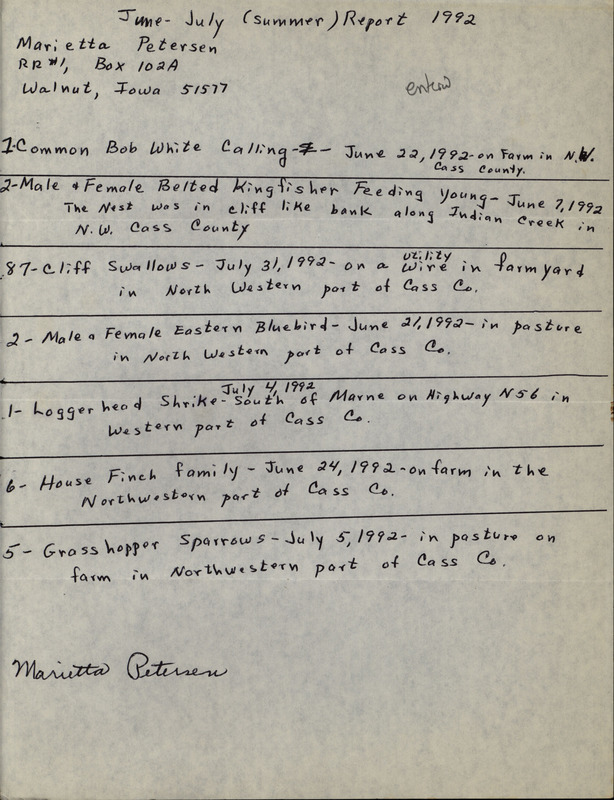 June- July (summer) Report 1992
Marietta Petersen
RR #1, Box 102A
Walnut, Iowa 51577
1-Common Bob White Calling- - June 22, 1992-on Farm in N.W.
Cass County.
2-Male & Female Belted Kingfisher Feeding Young- June 7, 1992
The Nest was in cliff like bank along Indian Creek in
N.W. Cass County
87-Cliff Swallows- July 31, 1992- on a utility wire in farmyard
in North Western part of Cass Co.
2- Male & Female Eastern Bluebird- June 21, 1992- in pasture
in North Western part of Cass Co.
July 4, 1992
1- Loggerhead Shrike- South of Marne on Highway N56 in
Western part of Cass Co.
6- House Finch family- June 24, 1992-on farm in the
Northwestern part of Cass Co.
5- Grasshopper Sparrows- July 5, 1992- in pasture on
farm in Northwestern part of Cass Co.
Marietta Petersen